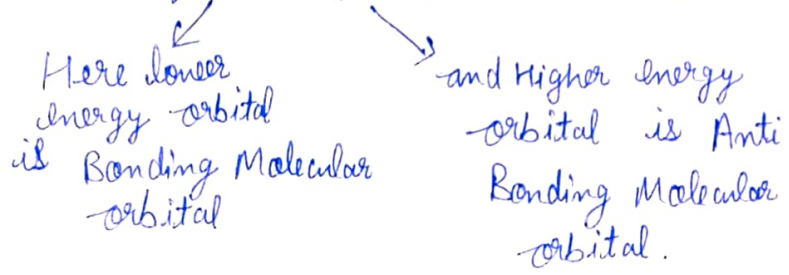 Here lower
energy orbital
is Bonding Molecular
orbital
and Higher energy
orbital is Anti
Bonding Molecular
orbital.